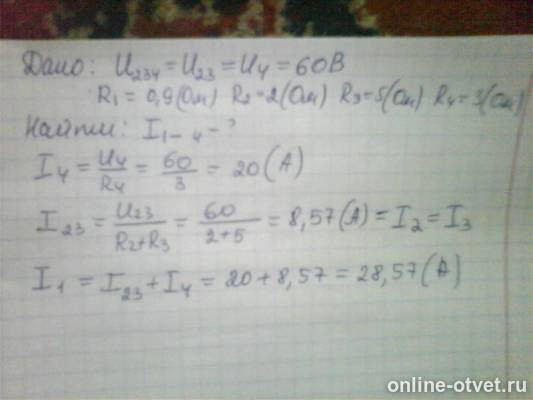 Дано: U₂₃₄ = U₂₃ = U₄ = 60В
R₁ = 0,9(Ом) R₂ = 2(Ом) R₃ = 5(Ом) R₄ = 3(Ом)
Найти: I₁₋₄ - ?
I₄ = U₄/R₄ = 60/3 = 20(А)
I₂₃ = U₂₃/R₂+R₃ = 60/2+5 = 8,57(А) = I₂ = I₃
I₁ = I₂₃ + I₄ = 20 + 8,57 = 28,57(А)
online-otvet.ru